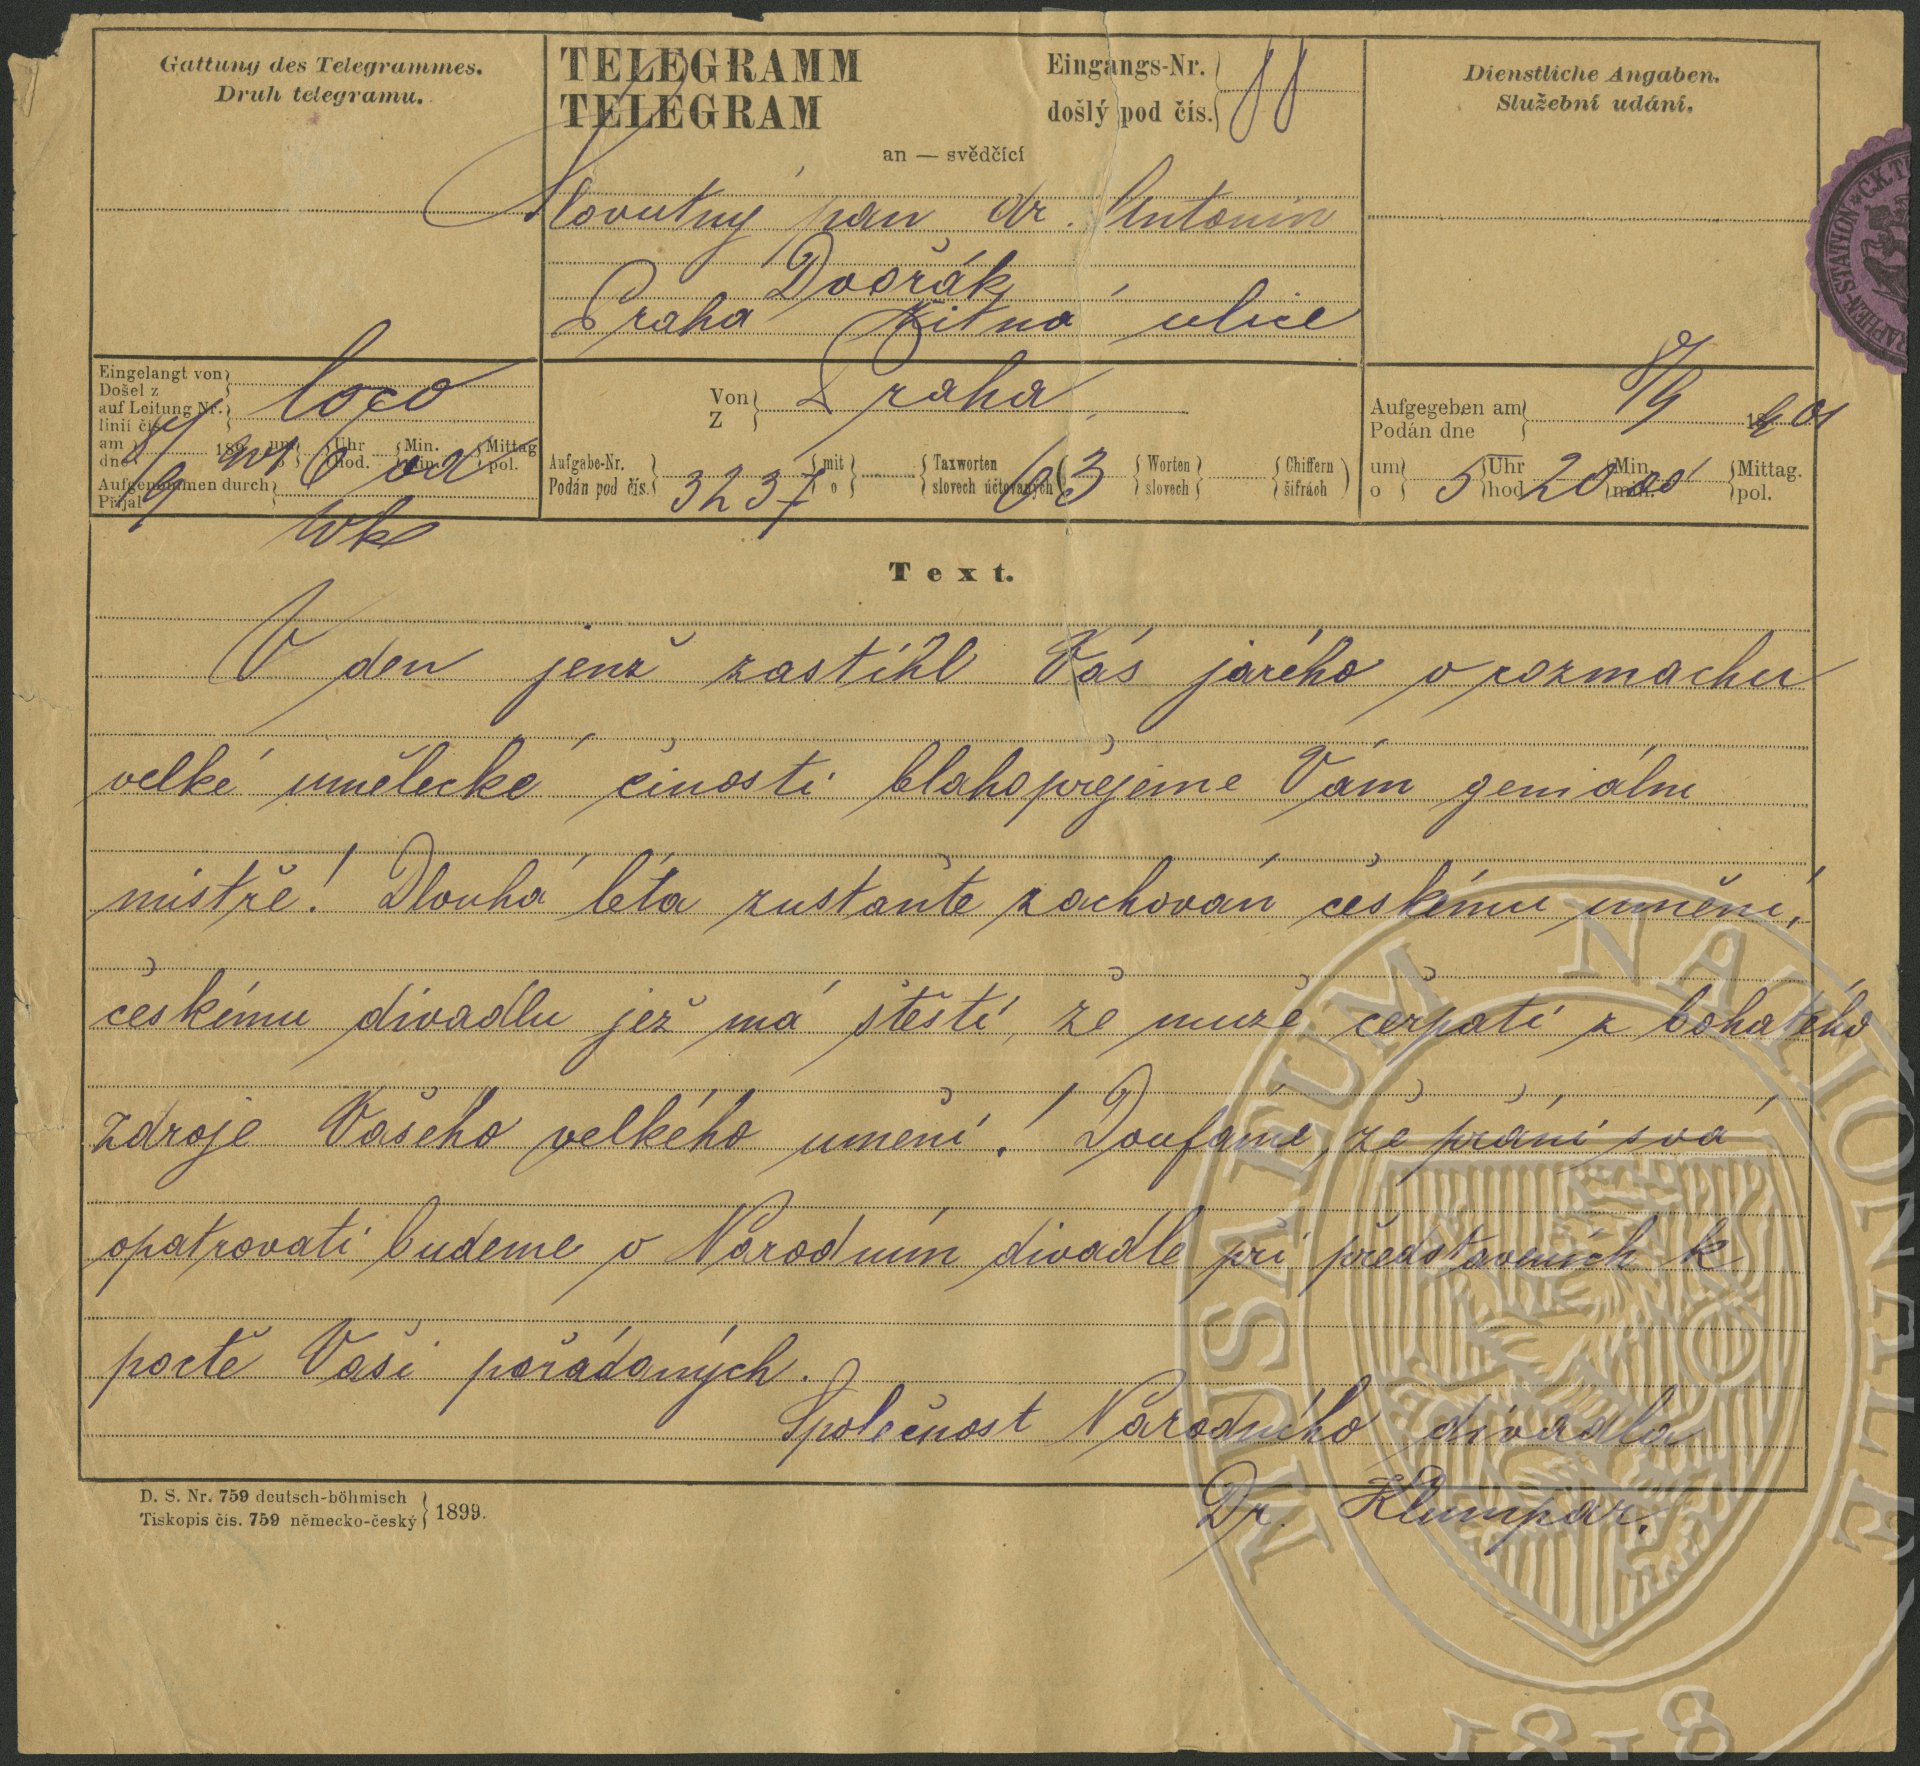 Gattung des Telegrammes.
Druh telegramu.
TELEGRAMM
TELEGRAM
Eingangs-Nr.
došlý pod čís.
an — svědčící
Dienstliche Angaben.
Služební udání.
Slovutný pan dr. Antonin
Dvořák
Praha Žitná ulice
Eingelangt von
Došel z
loco
auf Leitung Nr.
linii čís.
am
dne
um
o
6
Uhr
hod.
Min.
min.
Mittag
pol.
Aufgenommen durch
Přijal
Von
Z
Praha
Aufgabe-Nr.
Podán pod čís.
3237
mit
o
Taxworten
slovech účtovaných
63
Worten
slovech
Chiffern
šifrách
Aufgegeben am
Podán dne
8/9 1901
um
o
5
Uhr
hod
20
Min.
min.
Mittag.
pol.
Text.
V den jenž zastihl Vás jarého v rozmachu
velké umělecké činosti blahopřejeme Vám geniálni
mistře! Dlouhá léta zustaňte zachován českému uměni,
českému divadlu jež má štěstí, že muže čerpati z bohatého
zdroje Vašeho velkého uměni! Doufáme, že přáni svá
opatrovati budeme v Národním divadle při představenich k
poctě Vaši pořádaných.
Společnost Národního divadla
Dr. Klumpar.
D. S. Nr. 759 deutsch-böhmisch
Tiskopis čís. 759 německo-český
1899.
MUSAEUM NATIONALE
1818